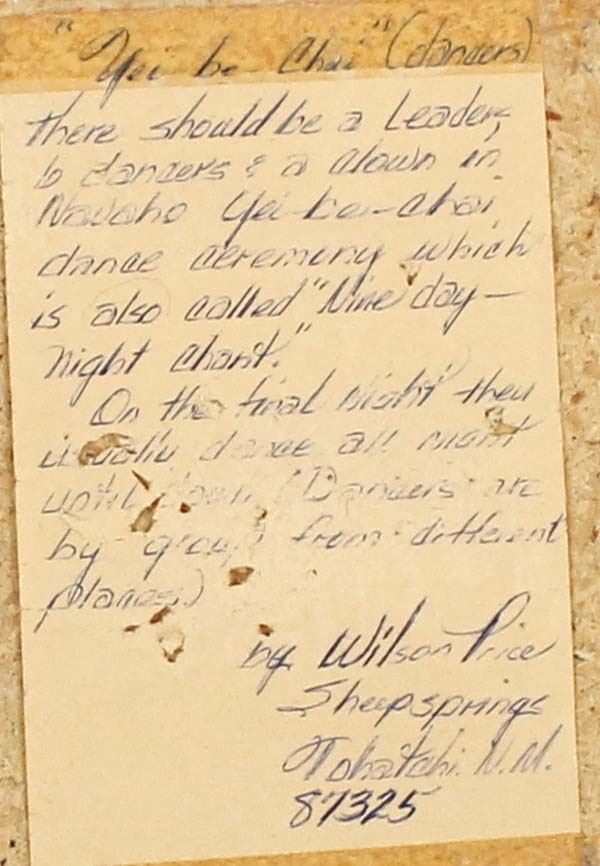 "Yei be Chai" (dancers)
There should be a Leader,
6 dancers & a clown in
Navaho Yei-be-chai
dance ceremony which
is also called "Nine day-
night chant."
On the final night they
usually dance all night
until dawn. (Dancers are
by groups from different
places.)
by Wilson Price
Sheepsprings
Tohatchi N.M.
87325